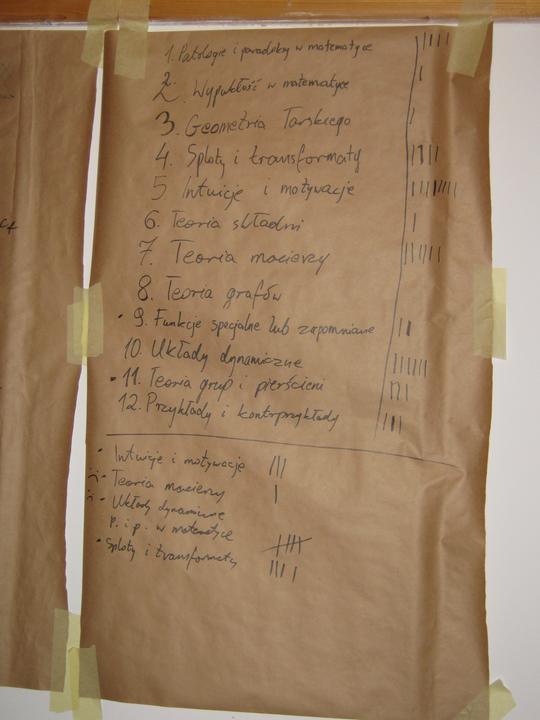 1. Patologie i paradoksy w matematyce
2. Wypukłość w matematyce
3. Geometria Tarskiego
4. Sploty i transformaty
5 Intuicje i motywacje
6. Teoria składni
7. Teoria macierzy
8. Teoria grafów
• 9. Funkcje specjalne lub zapomniane
10. Układy dynamiczne
• 11. Teoria grup i pierścieni
12. Przykłady i kontrprzykłady
• Intuicje i motywacje
Teoria macierzy
Układy dynamiczne
P. i p. w matematyce
• Sploty i transformaty